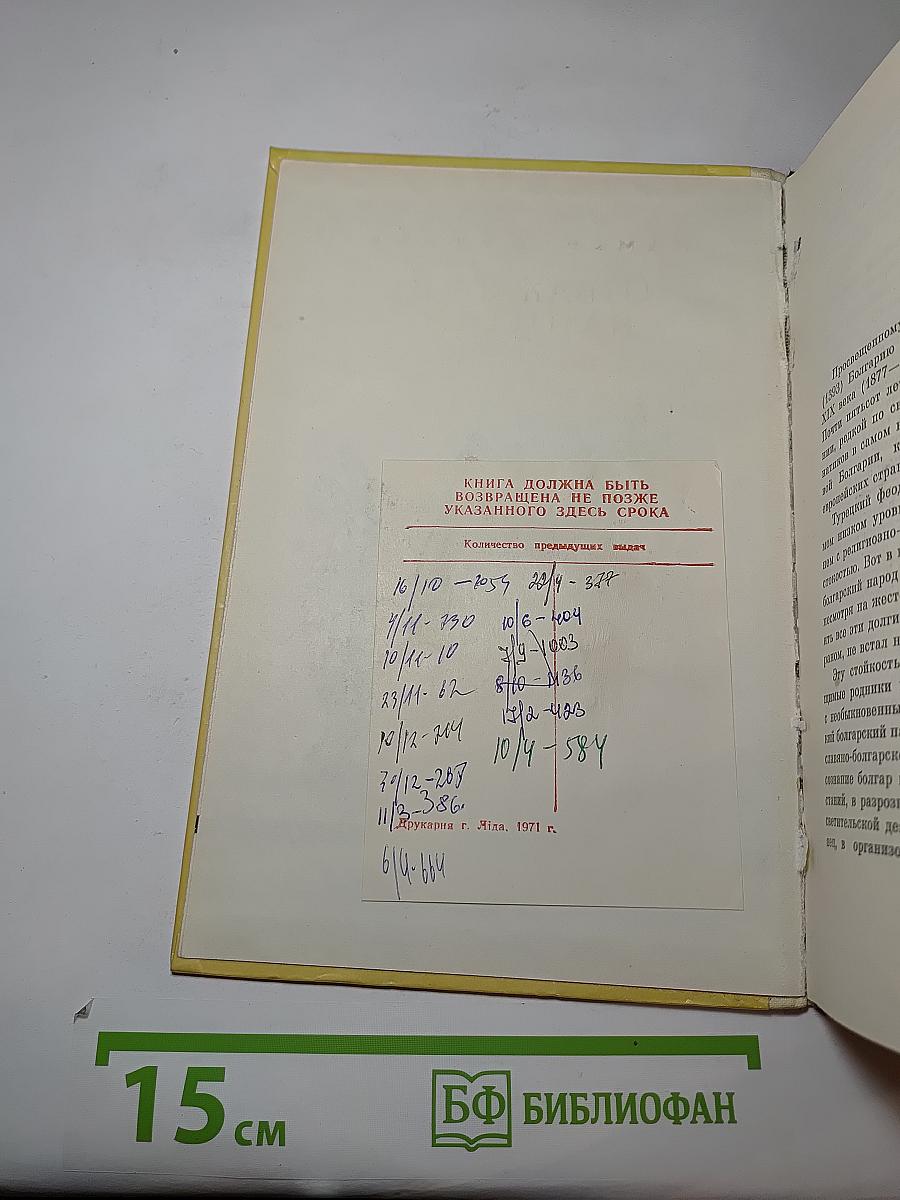 КНИГА ДОЛЖНА БЫТЬ
ВОЗВРАЩЕНА НЕ ПОЗЖЕ
УКАЗАННОГО ЗДЕСЬ СРОКА
Количество предыдущих выдач
16/10 – 2054
4/11 - 730
10/11 - 10
23/11 - 62
10/12 - 214
30/12 - 287
11/3 - 386
Друкарня г. Ліда, 1971 г.
6/4 - 664
22/4 - 377
10/6 - 404
7/9 - 1003
8/10 - 1136
17/2 - 423
10/4 – 584
Просвещенному
(1393) Болгарию
XIX века (1877—
Почти пятьсот ле
нии, редкой по
в самом
вой Болгарии, к
европейских стра
Турецкий феод
мом низком уров
цем с религиозно-
стокостью. Вот в
болгарский народ
несмотря на жест
ать все эти долги
раком, не встал н
Эту стойкость
щимые родники
с необыкновенны
кий болгарский па
славяно-болгарско
сознание болгар
станий, в разроз
светительской де
вец, в организо
15 см
БФ БИБЛИОФАН